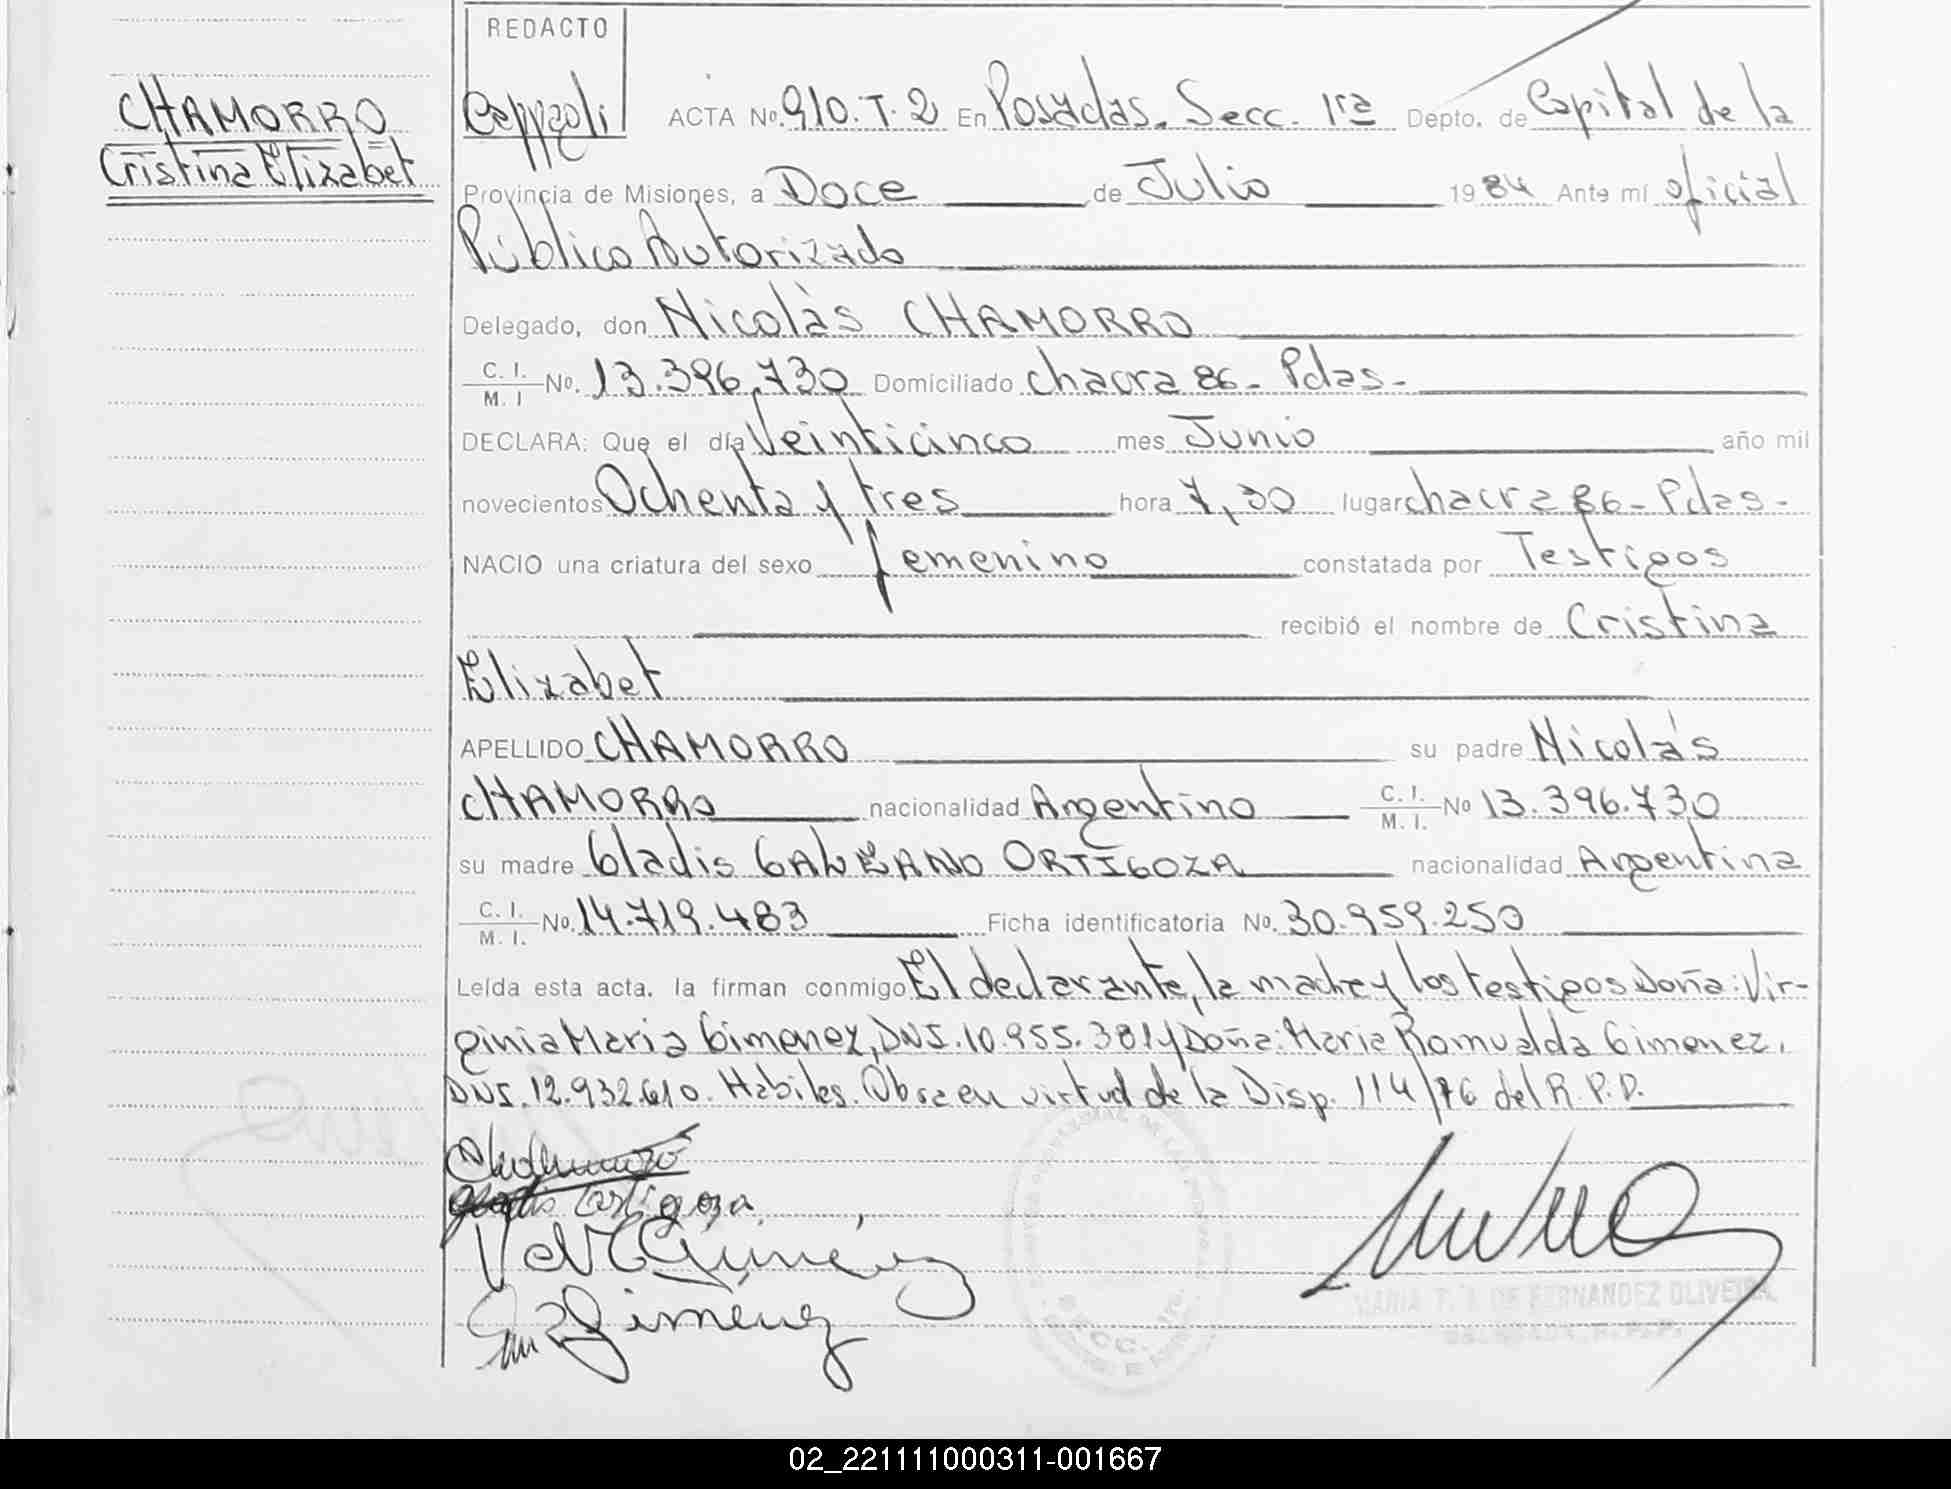 REDACTO
CHAMORRO
Cristina Elizabet
ACTA No. 910. T. 2 En Posadas. Secc. 1ra Depto. de Capital de la
Provincia de Misiones, a Doce de Julio 1984 Ante mí oficial
Público Autorizado
Delegado, don Nicolàs CHAMORRO
C. I. / M. I No. 13.396.730 Domiciliado chacra 86- Pdas-
DECLARA: Que el día Veinticinco mes Junio año mil
novecientos Ochenta y tres hora 7,30 lugar chacra 86- Pdas-
NACIO una criatura del sexo femenino constatada por Testigos
recibió el nombre de Cristina
Elizabet
APELLIDO CHAMORRO su padre Nicolás
CHAMORRO nacionalidad Argentino C. I. / M. I. No 13.396.730
su madre Gladis GALEANO ORTIGOZA nacionalidad Argentina
C. I. / M. I. No. 14.719.483 Ficha identificatoria No. 30.959.250
Leída esta acta, la firman conmigo El declarante, la madre y los testigos Doña: Vir-
ginia Maria Gimenez, DNI. 10.955.381 y Doña: Maria Romualda Gimenez.
DNI. 12.932.610. Habiles. Obra en virtud de la Disp. 114/76 del R.P.P.
Ortigoza
Giménez
Gimenez
MARIA T. DE FERNANDEZ OLIVEIRA
DELEGADA R.P.P.
SECC. 1ra.
02_221111000311-001667